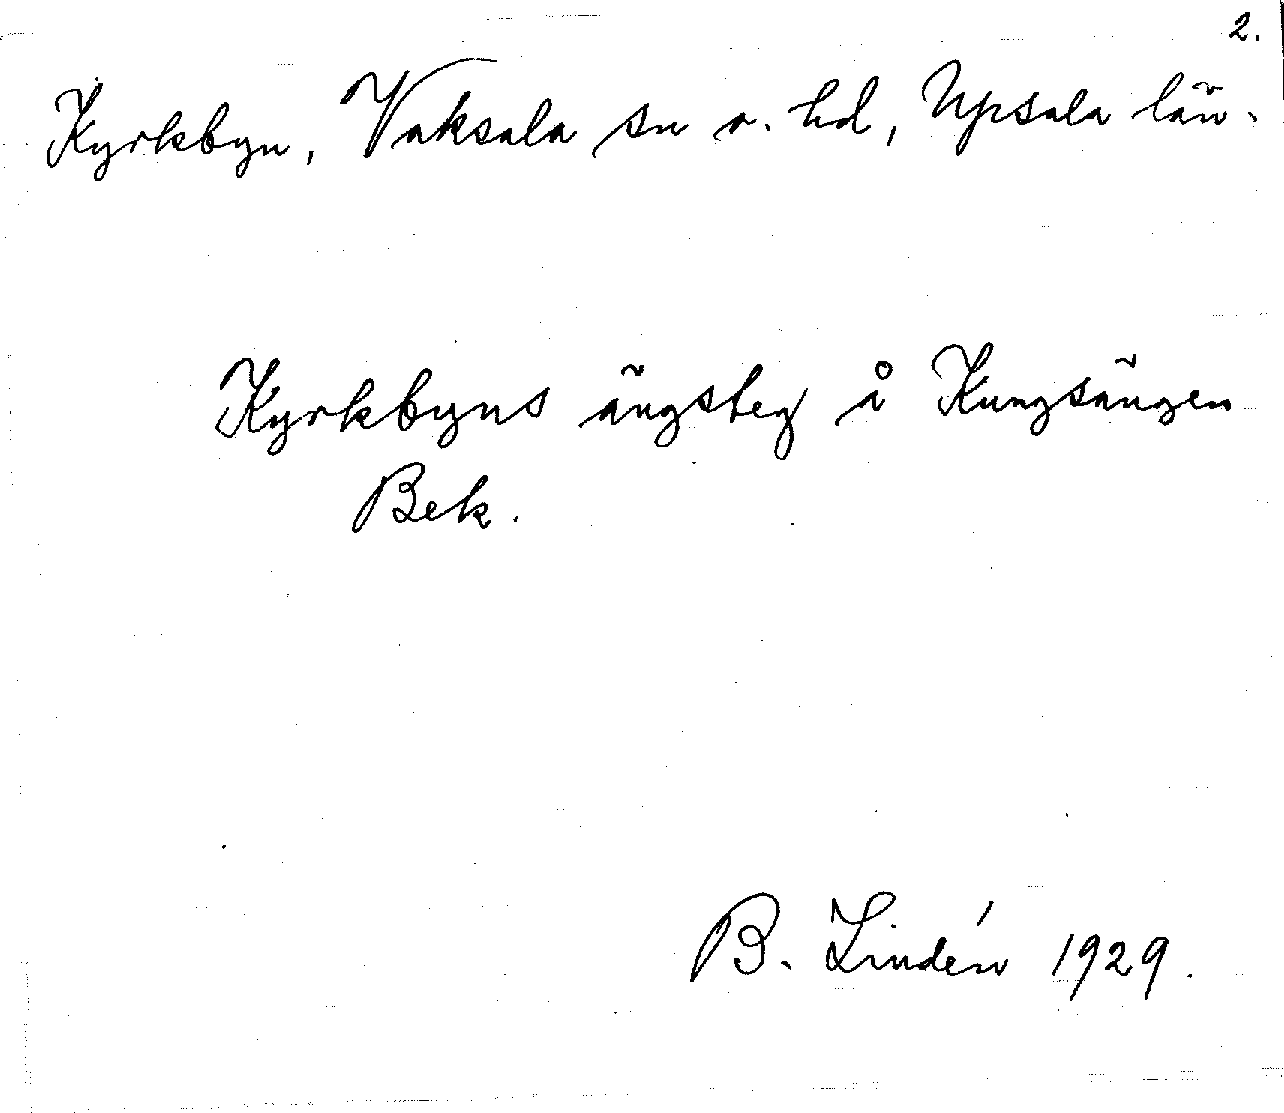 2.
Kyrkbyn, Vaksala sn o. hd, Upsala län.
Kyrkbyns ängsteg å Kungsängen
Bek.
B. Lindén 1929.